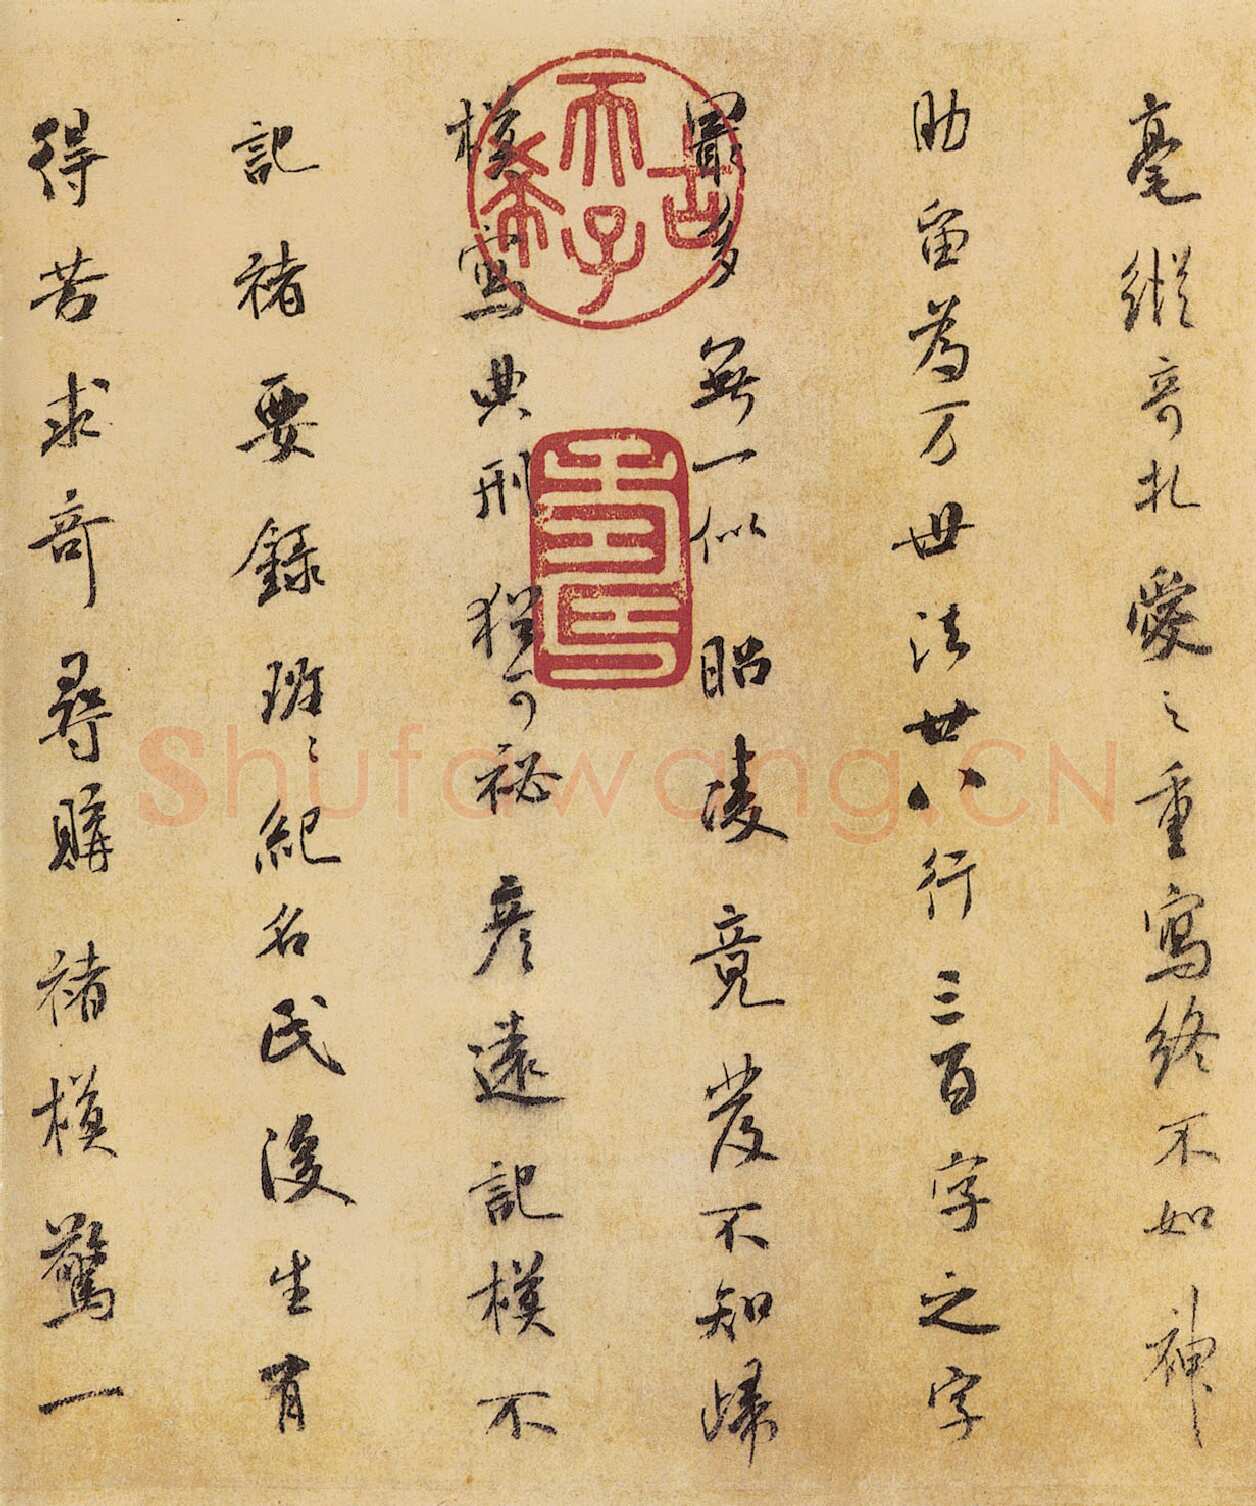 毫縱奇札愛之重寫終不如神
助留為万世法廿八行三百字之字
最多無一似昭陵竟發不知歸
模寫典刑猶可祕彥遠記模不
記褚要錄班〻紀名氏後生有
得苦求奇尋購褚模驚一
天子
古
希
壽
Shufawang.CN